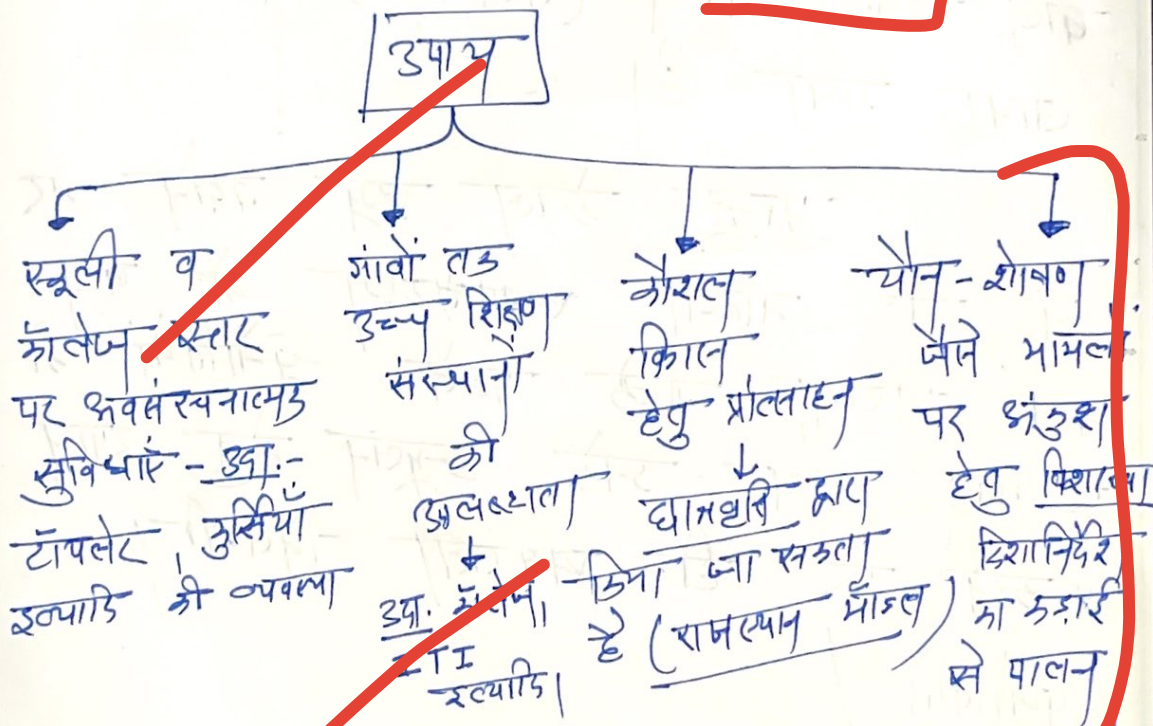 उपाय
स्कूली व
कॉलेज स्तर
पर अवसंरचनात्मक
सुविधाएं - उदा:-
टॉयलेट, कुर्सियाँ
इत्यादि की व्यवस्था
गांवों तक
उच्च शिक्षण
संस्थानों
की
उपलब्धता
उदा: कॉलेज,
ITI
इत्यादि।
कौशल
विकास
हेतु प्रोत्साहन
छात्रवृत्ति द्वारा
किया जा सकता
है (राजस्थान मॉडल)
यौन-शोषण
जैसे मामलों
पर अंकुश
हेतु विशाखा
दिशानिर्देश
का कड़ाई
से पालन